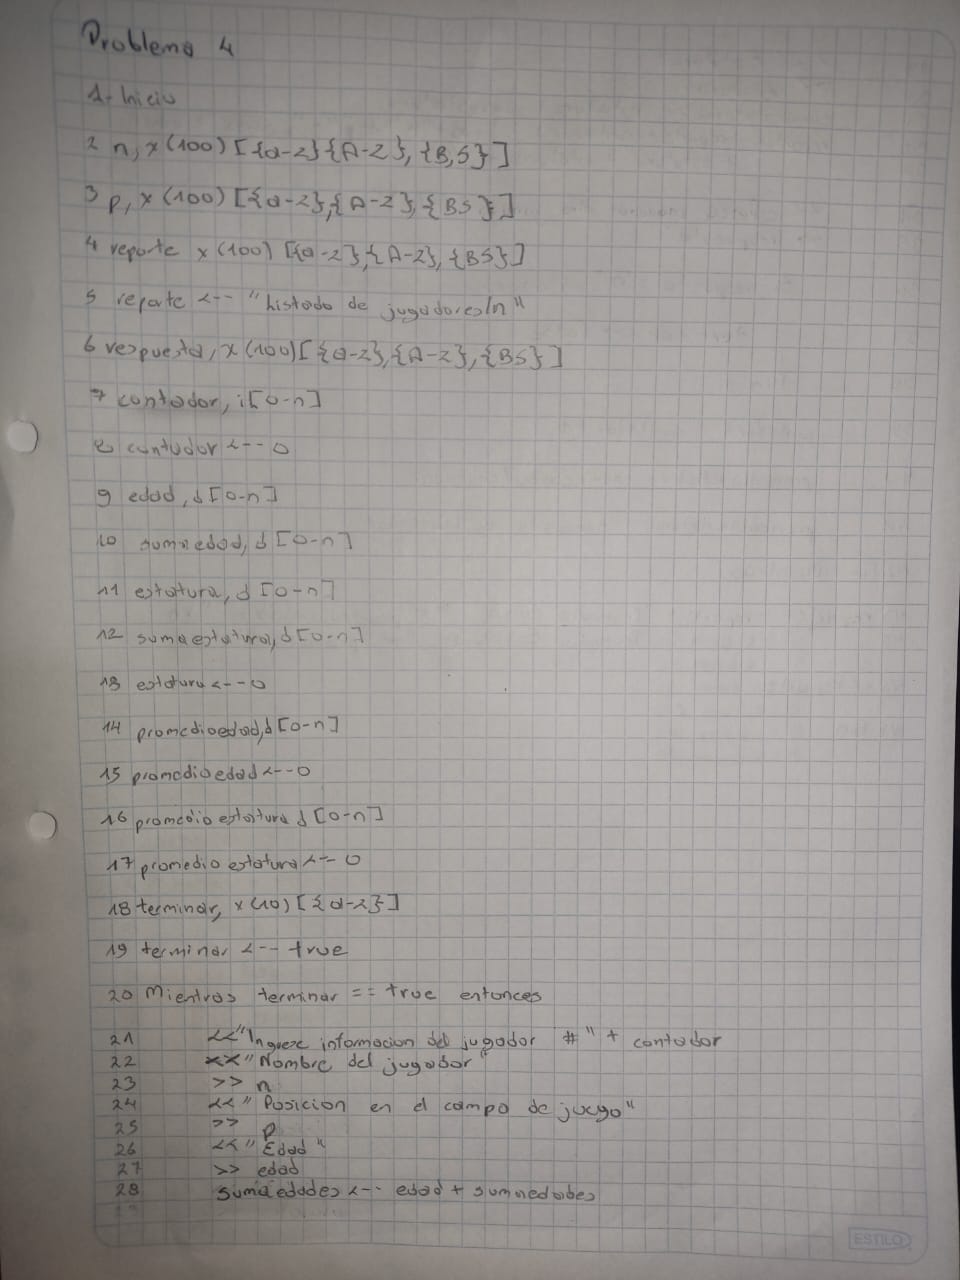 Problema 4
1- Inicio
2 n, x(100) [{a-z}{A-Z}, {B,S}]
3 p, x (100) [{a-z},{A-Z},{BS}]
4 reporte x (100) [{a-z},{A-Z},{BS}]
5 reporte <-- "Listado de jugadores/n"
6 respuesta, x(100)[{a-z},{A-Z},{BS}]
7 contador, i[0-n]
8 contador <-- 0
9 edad, d[0-n]
10 sumaedad, d[0-n]
11 estatura, d [0-n]
12 sumaestatura, d[0-n]
13 estatura <-- 0
14 promedioedad, d[0-n]
15 promedioedad <-- 0
16 promedio estatura d [0-n]
17 promedio estatura <-- 0
18 terminar, x(10) [{a-z}]
19 terminar <-- true
20 Mientras terminar == true entonces
21 <<"Ingrese informacion del jugador #" + contador
22 <<"Nombre del jugador"
23 >> n
24 <<"Posicion en el campo de juego"
25 >> p
26 <<"Edad"
27 >> edad
28 sumaedades <-- edad + sumaedades
ESTILO